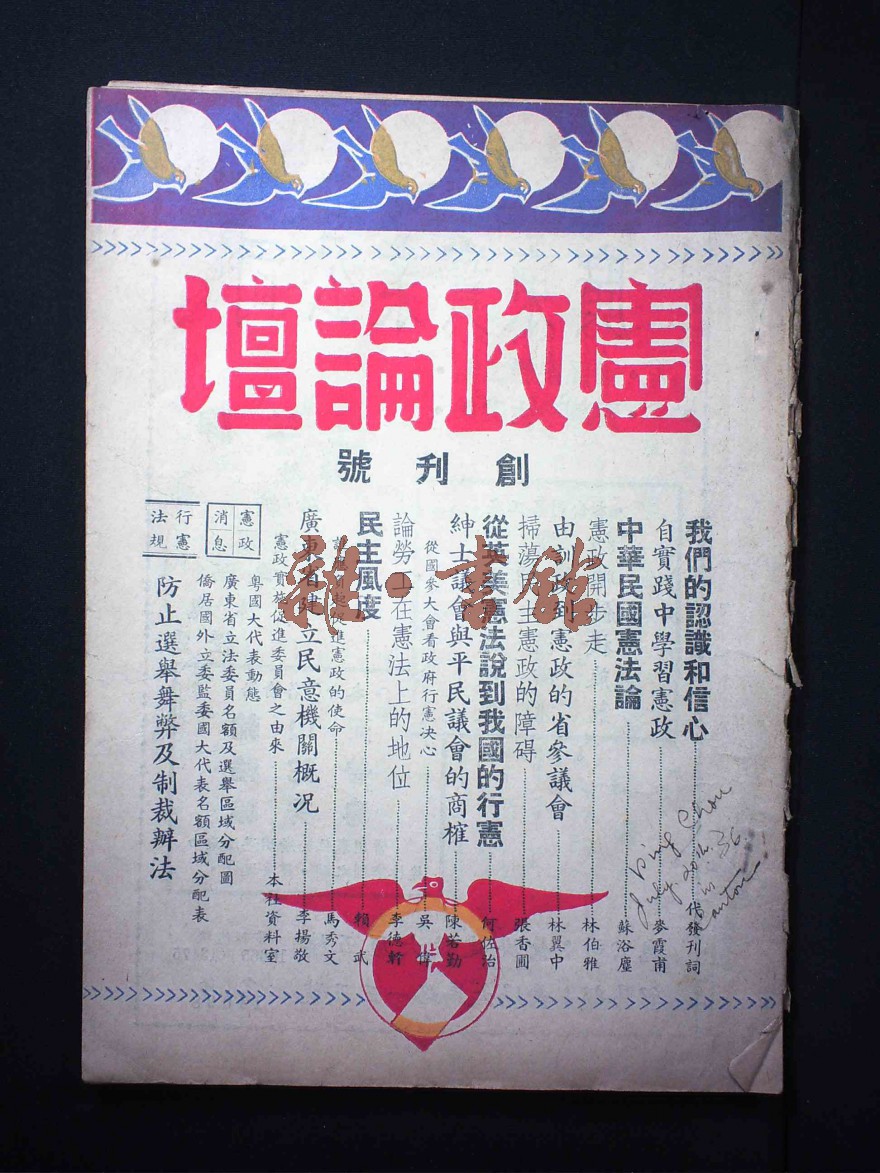 憲政論壇
創刊號
我們的認識和信心 代發刊詞
自實踐中學習憲政 麥霞甫
中華民國憲法論 蘇浴塵
憲政開步走 林伯雅
由訓政到憲政的省參議會 林翼中
掃蕩民主憲政的障碍 張香圃
從英美憲法說到我國的行憲 何佐治
紳士議會與平民議會的商榷 陳若勤
從國參大會看政府行憲決心 吳偉
論勞工在憲法上的地位 李德軒
民主風度 賴武
促進憲政的使命 馬秀文
廣東省建立民意機關概況 李揚敬
憲政實施促進委員會之由來 本社資料室
憲政消息
粵國大代表動態
廣東省立法委員名額及選舉區域分配圖
僑居國外立委監委國大代表名額區域分配表
行憲法規
防止選舉舞弊及制裁辦法
雜·書館
Ping Chou
July 20th. 36
in Canton